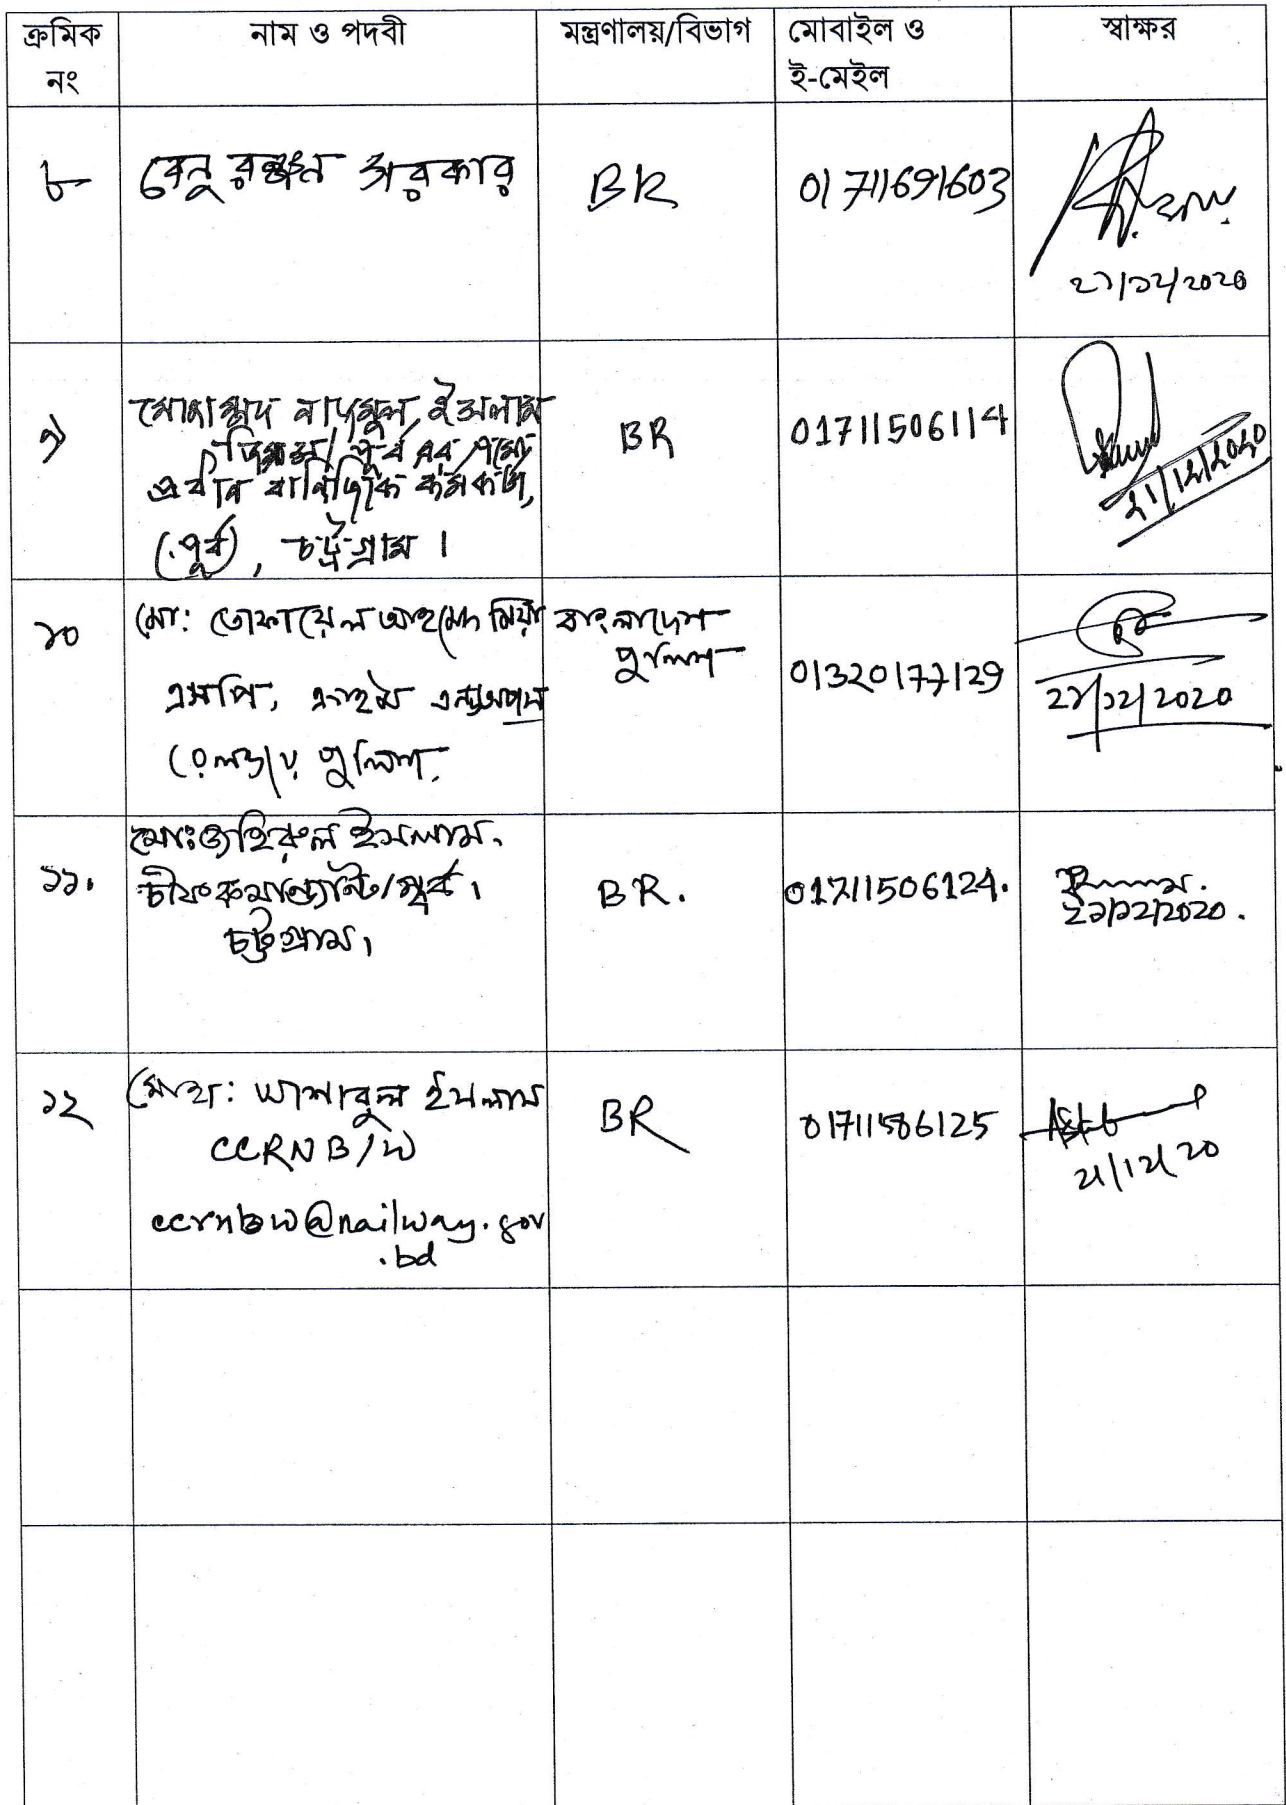 ক্রমিক নং
নাম ও পদবী
মন্ত্রণালয়/বিভাগ
মোবাইল ও ই-মেইল
স্বাক্ষর
৮
বেনু রঞ্জন সরকার
BR
01711691603
২১/১২/২০২০
৯
মোহাম্মদ নাজমুল ইসলাম
পূর্ব এবং
প্রধান বাণিজ্যিক কর্মকর্তা,
(পূর্ব), চট্টগ্রাম।
BR
01711506114
21/12/2020
১০
মো: তোফায়েল আহমেদ মিয়া
এসপি, ক্রাইম এন্ড অপস
রেলওয়ে পুলিশ.
বাংলাদেশ
পুলিশ
01320177129
২১/১২/2020
১১.
মোঃ জহিরুল ইসলাম.
চীফ কমান্ড্যান্ট/পূর্ব।
চট্টগ্রাম।
BR.
01711506124.
২১/১২/2020.
১২
মোহা: আশাবুল ইসলাম
CCRNB/W
ccrnbw@railway.gov
.bd
BR
01711506125
21/12/20